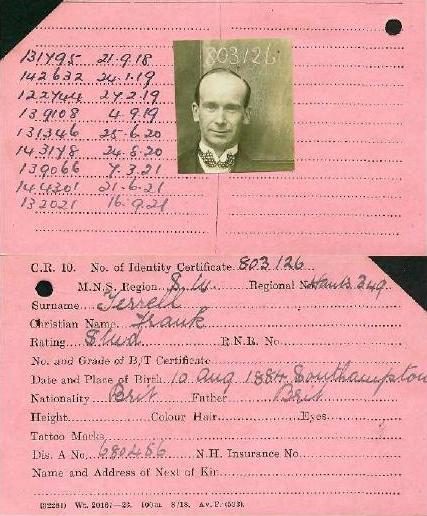 131795 21.9.18
142632 24.1.19
122744 27.2.19
139108 4.9.19
131346 25.6.20
143178 24.5.20
139066 7.3.21
144301 21.6.21
132021 16.9.21
803126
C.R. 10. No. of Identity Certificate 803126
M.N.S. Region S.W. Regional No. Hants 349
Surname Terrell
Christian Name Frank
Rating Stwd R.N.R. No.
No. and Grade of B/T Certificate
Date and Place of Birth 10 Aug 1884 Southampton
Nationality Brit Father Brit
Height Colour Hair Eyes
Tattoo Marks
Dis. A No. 680486 N.H. Insurance No.
Name and Address of Next of Kin
Wt. 20167—23. 100m. 8/18. Av. P. (533).